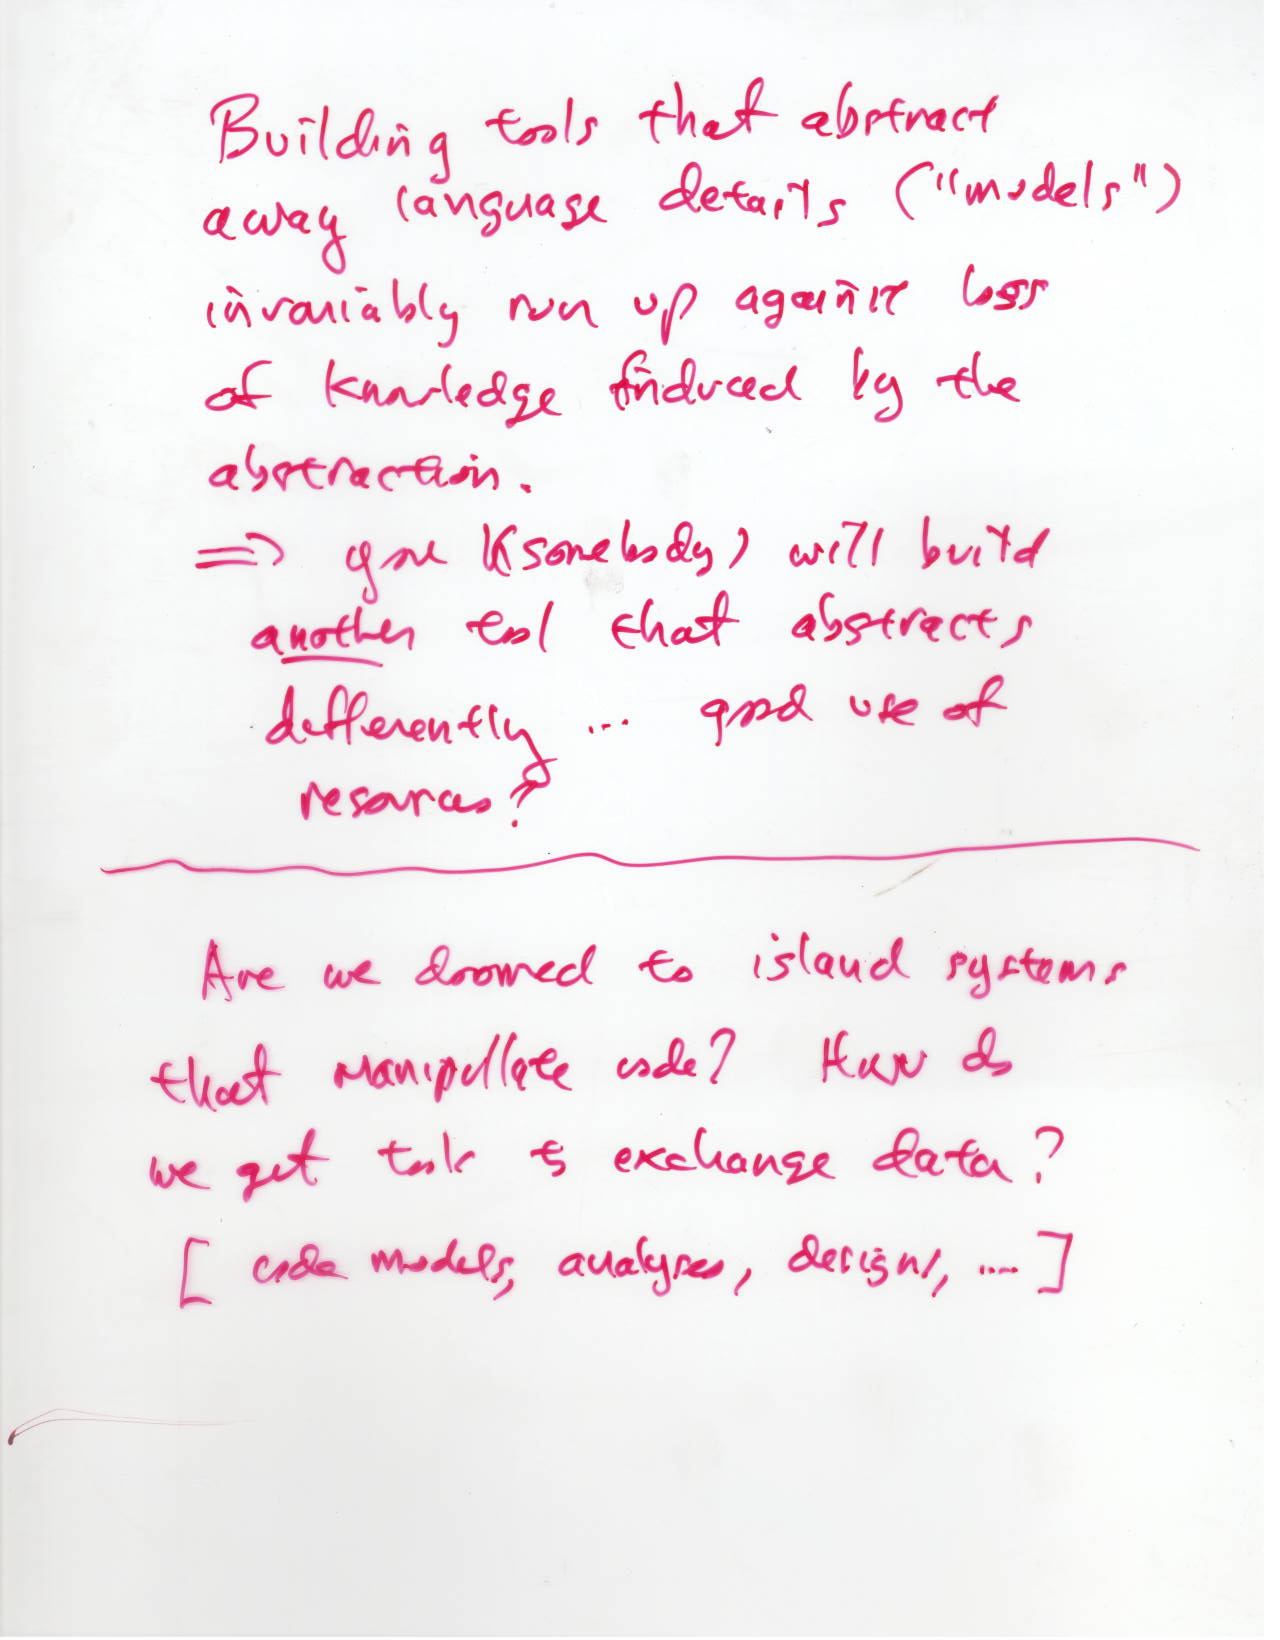 Building tools that abstract
away language details ("models")
invariably run up against loss
of knowledge induced by the
abstraction.
=> you (somebody) will build
another tool that abstracts
differently ... good use of
resources?
Are we doomed to island systems
that manipullate code? How do
we get tools to exchange data?
[ code models, analyses, designs, .... ]